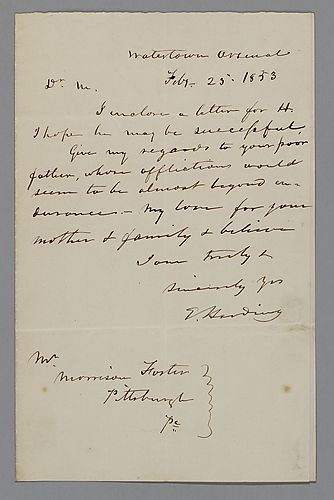 Watertown Arsenal
Feby. 25. 1853
Dr. M.
I enclose a letter for H.
I hope he may be successful.
Give my regards to your poor
father, whose afflictions would
seem to be almost beyond en-
durance. - My love for your
mother & family & believe
I am truly &
sincerely Yrs
E. Harding
Mr.
Morrison Foster
Pittsburgh
Pa.